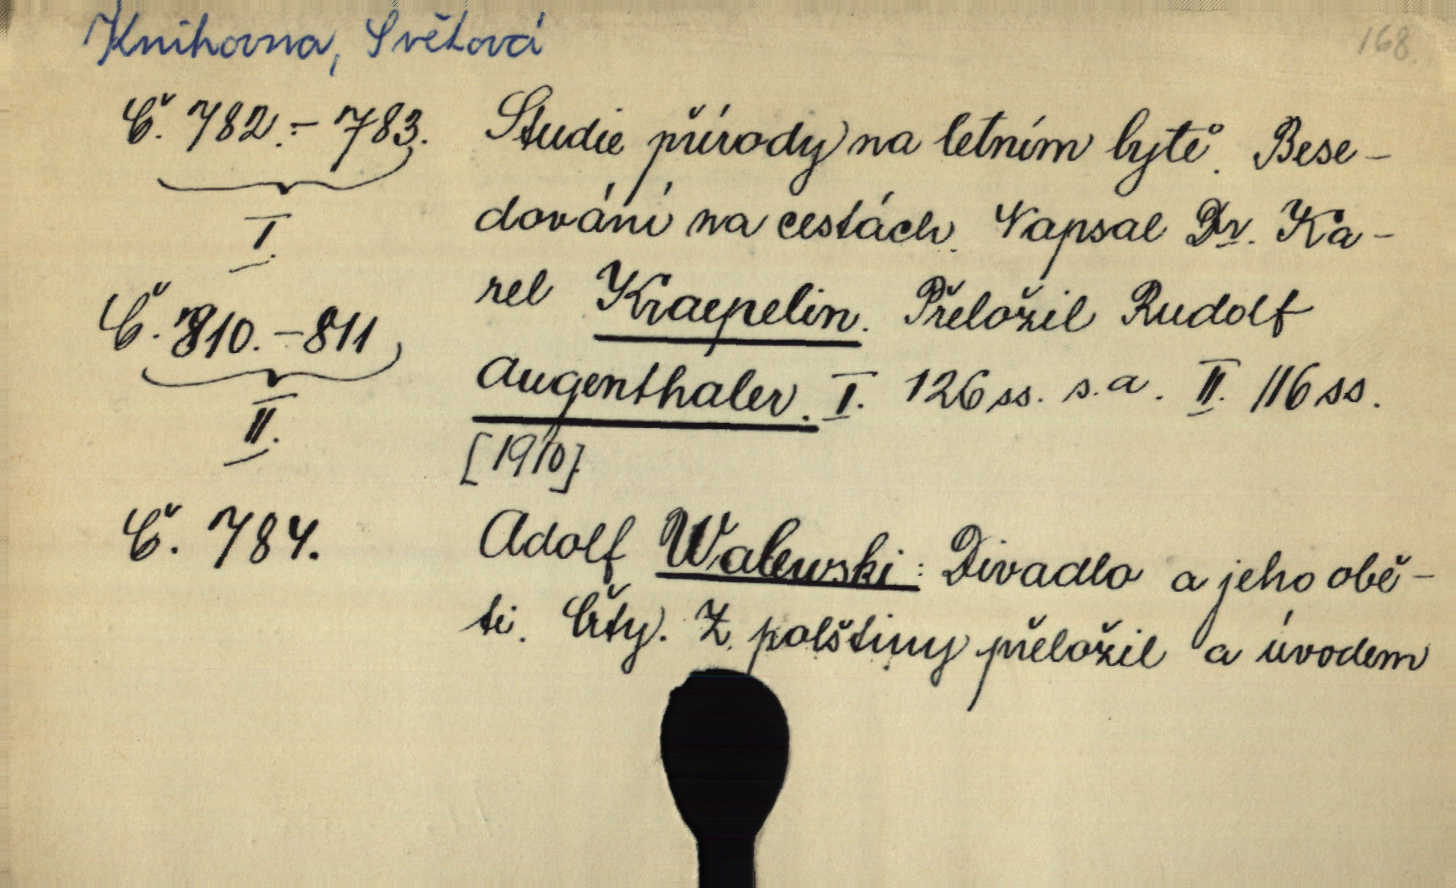 Knihovna, Světová
168.
Č. 782.-783. Studie přírody na letním bytě. Bese-
I. dování na cestách. Napsal Dr. Ka-
rel Kraepelin. Přeložil Rudolf
Č. 810.-811 Augenthaler. I. 126 ss. s.a. II. 116 ss.
II. [1910]
Č. 784. Adolf Walewski: Divadlo a jeho obě-
ti. Črty. Z polštiny přeložil a úvodem